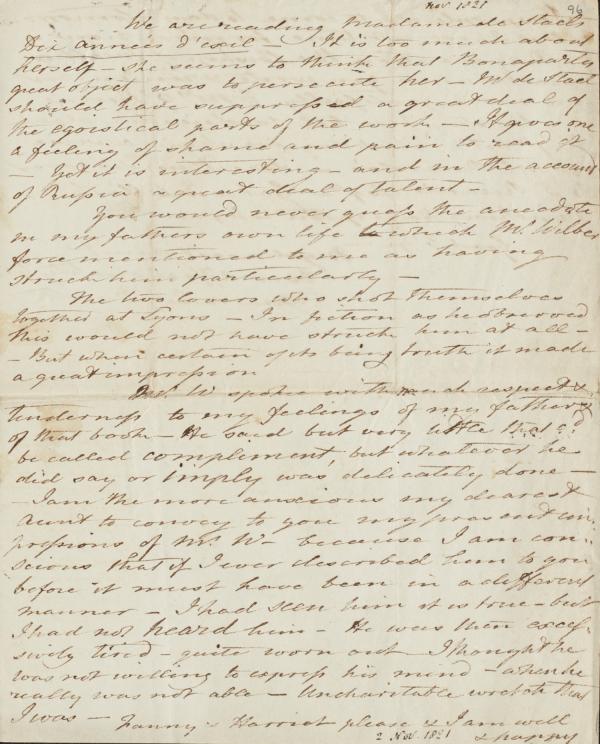 Nov. 1821
96
We are reading Madame de Stael's
Dix années d'exil – It is too much about
herself – she seems to think that Bonaparte's
great object was to persecute her – M de Stael
should have suppressed a great deal of
the egoistical parts of the work – It gives one
a feeling of shame and pain to read it
– Yet it is interesting – and in the account
of Russia a great deal of talent –
You would never guess the anecdote
in my fathers own life which Mr. Wilber
force mentioned to me as having
struck him particularly –
The two lovers who shot themselves
together at Lyons – In fiction as he observed
this would not have struck him at all –
– But when certain of its being truth it made
a great impression
Mr. W spoke with much respect &
tenderness to my feelings of my father &
of that book – He said but very little that cd
be called compliment, but whatever he
did say or imply was delicately done –
– I am the more anxious my dearest
aunt to convey to you my present im-
pressions of Mr. W– because I am con-
scious that if I ever described him to you
before it must have been in a different
manner – I had seen him it is true – but
I had not heard him – He was then exces-
sively tired – quite worn out I thought he
was not willing to express his mind – when he
really was not able – Uncharitable wretch that
I was –
Fanny & Harriet please & I am well
& happy
2 Nov. 1821